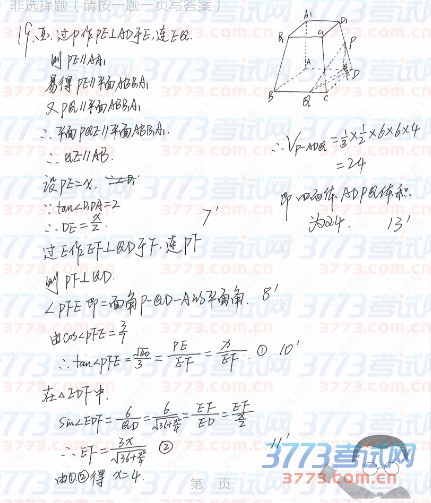 非选择题（请按一题一页写答案）
19. 過P作PE⊥AD于E,连EQ.
则PE∥AA₁
易得PE∥平面ABB₁A₁
又PQ∥平面ABB₁A₁
∴平面PQE∥平面ABB₁A₁.
∴QE∥AB.
设PE=x.
∵tan∠D₁DA=2
∴DE=x/2. 7'
过E作EF⊥QD于F,连PF
则PF⊥QD.
∠PFE即二面角P-QD-A的平面角. 8'
由cos∠PFE=3/7
∴tan∠PFE=√40/3=PE/EF=x/EF ① 10'
在△EDF中.
Sin∠EDF=6/QD=6/√36+x²=EF/ED=EF/(x/2)
∴EF=3x/√36+x² ② 11'
由①②得 x=4.
A₁
D₁
B₁
C₁
P
A
D
B
Q
C
∴V_P-ADQ=1/3×1/2×6×6×4
=24
即四面体ADPQ体积
为24. 13'
第 页
3773考试网
3773.com.cn